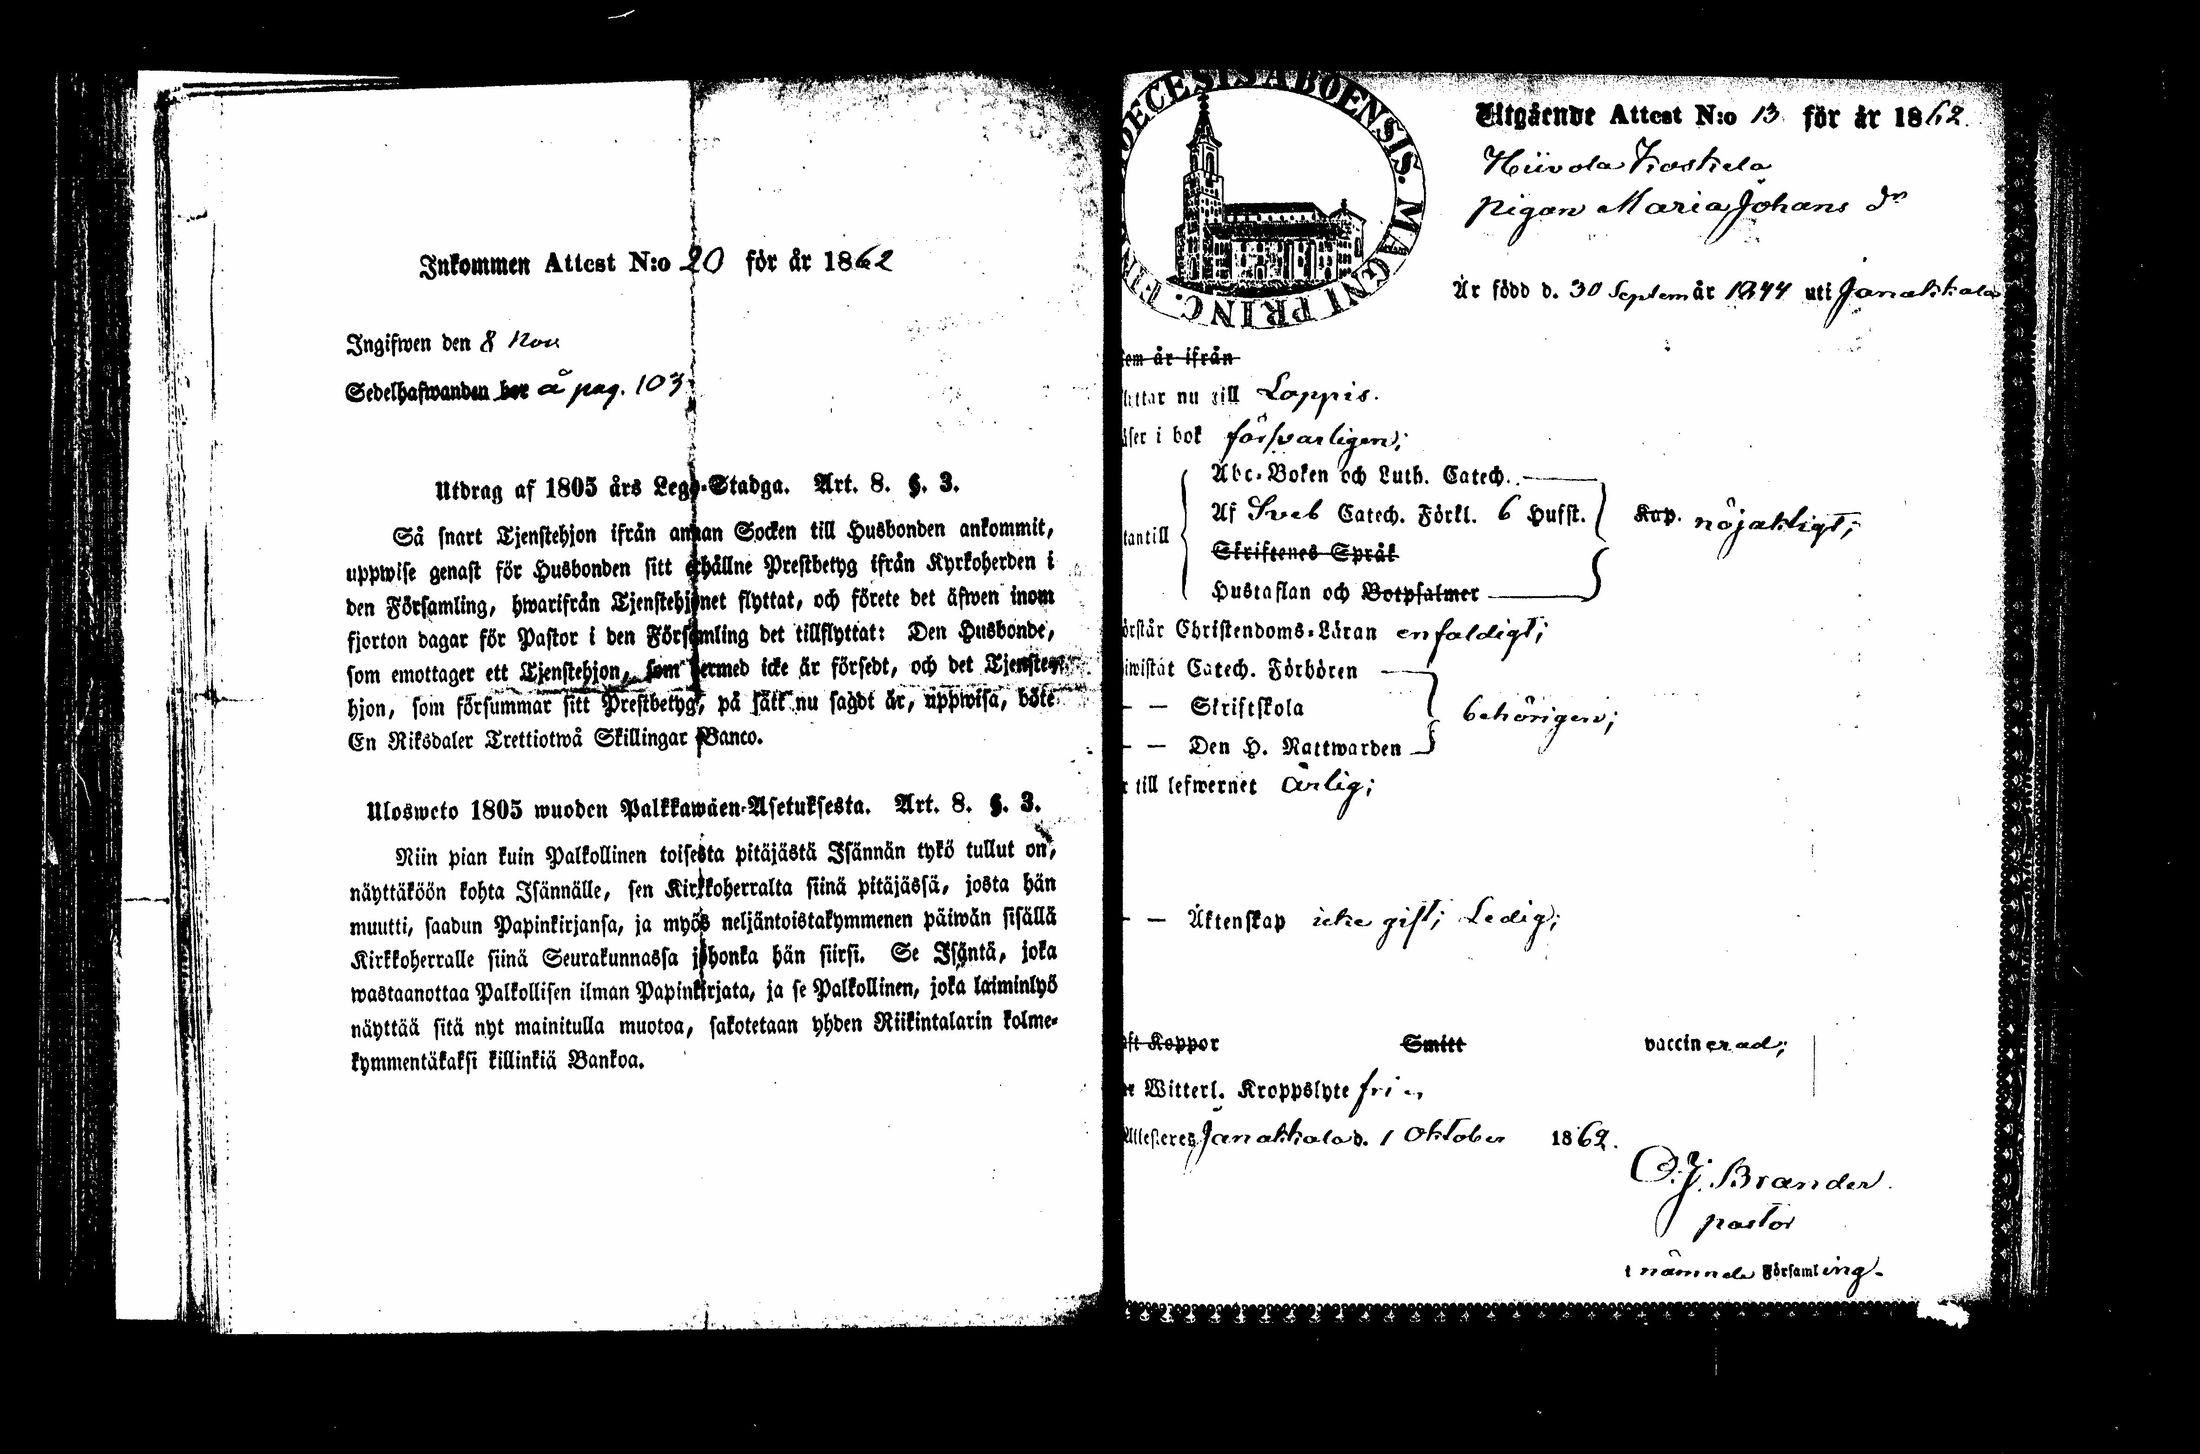 Inkommen Attest N:o 20 för år 1862
Ingifwen den 8 Nov
Sedelhafwanden bor å pag. 103
Utdrag af 1805 års Lego-Stadga. Art. 8. §. 3.
Så snart Tjenstehjon ifrån annan Socken till Husbonden ankommit,
uppwise genast för Husbonden sitt erhållne Prestbetyg ifrån Kyrkoherden i
den Församling, hwarifrån Tjenstehjonet flyttat, och förete det äfwen inom
fjorton dagar för Pastor i den Församling det tillflyttat: Den Husbonde,
som emottager ett Tjenstehjon, som dermed icke är försedt, och det Tjenste-
hjon, som försummar sitt Prestbetyg, på sätt nu sagdt är, uppwisa, böte
En Riksdaler Trettiotwå Skillingar Banco.
Ulosweto 1805 wuoden Palkkawäen-Asetuksesta. Art. 8. §. 3.
Niin pian kuin Palkollinen toisesta pitäjästä Isännän tykö tullut on,
näyttäköön kohta Isännälle, sen Kirkkoherralta siinä pitäjässä, josta hän
muutti, saadun Papinkirjansa, ja myös neljäntoistakymmenen päiwän sisällä
Kirkkoherralle siinä Seurakunnassa johonka hän siirsi. Se Isäntä, joka
wastaanottaa Palkollisen ilman Papinkirjata, ja se Palkollinen, joka laiminlyö
näyttää sitä nyt mainitulla muotoa, sakotetaan yhden Riikintalarin kolme-
kymmentäkaksi killinkiä Bankoa.
DECESIS ABOENSIS. MAGNI PRINC. FIN
Utgående Attest N:o 13 för år 1862.
Hiivola Koskela
pigan Maria Johans dr
Är född d. 30 Septem år 1844 uti Janakkala
år ifrån
nu till Loppis.
i bok försvarligen;
Abc-Boken och Luth. Catech.
Af Sveb Catech. Förkl. 6 Hufst. Kap. nöjaktigt;
tantill
Skriftenes Språk
Hustaflan och Botpsalmer
örstår Christendoms-Läran enfaldigt;
iwistat Catech. Förhören
— — Skriftskola behörigen;
— — Den H. Nattwarden
till lefwernet ärlig;
— — Äktenskap icke gift; Ledig;
aft Koppor Smitt vaccinerad;
Witterl. Kroppslyte fri
Attesteres Janakkala d. 1 Oktober 1862.
C. J. Brander
pastor
i nämnde Församling.